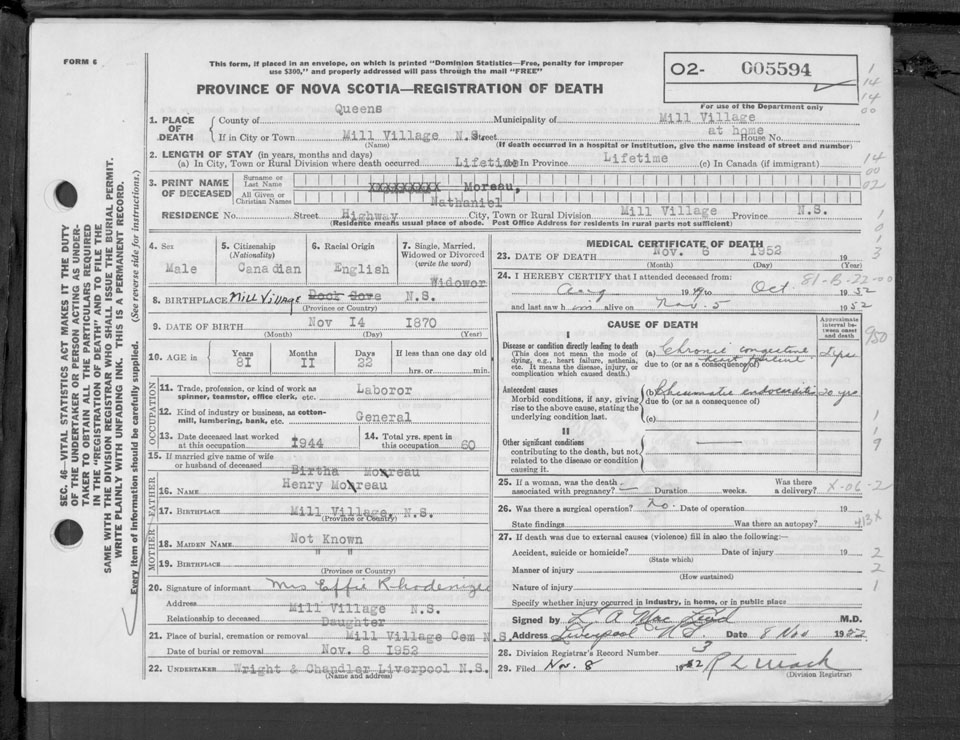 FORM 6
This form, if placed in an envelope, on which is printed "Dominion Statistics—Free, penalty for improper
use $300," and properly addressed will pass through the mail "FREE"
O2- G05594
PROVINCE OF NOVA SCOTIA—REGISTRATION OF DEATH
For use of the Department only
1. PLACE OF DEATH
County of Queens Municipality of Mill Village
If in City or Town Mill Village N.S. Street at home House No.
(Name) (If death occurred in a hospital or institution, give the name instead of street and number)
2. LENGTH OF STAY (in years, months and days)
(a) In City, Town or Rural Division where death occurred Lifetime (b) In Province Lifetime (c) In Canada (if immigrant)
3. PRINT NAME OF DECEASED
Surname or Last Name Moreau,
All Given or Christian Names Nathaniel
RESIDENCE No. Street Highway City, Town or Rural Division Mill Village Province N.S.
(Residence means usual place of abode. Post Office Address for residents in rural parts not sufficient)
4. Sex Male
5. Citizenship (Nationality) Canadian
6. Racial Origin English
7. Single, Married, Widowed or Divorced (write the word) Widowor
8. BIRTHPLACE Mill Village N.S.
(Province or Country)
9. DATE OF BIRTH Nov I4 I870
(Month) (Day) (Year)
10. AGE in Years 8I Months II Days 22 If less than one day old hrs. or min.
OCCUPATION
11. Trade, profession, or kind of work as spinner, teamster, office clerk, etc. Laboror
12. Kind of industry or business, as cotton-mill, lumbering, bank, etc. General
13. Date deceased last worked at this occupation I944
14. Total yrs. spent in this occupation 60
15. If married give name of wife or husband of deceased Birtha Moreau
FATHER
16. NAME Henry Moreau
17. BIRTHPLACE Mill Village, N.S.
(Province or Country)
MOTHER
18. MAIDEN NAME Not Known
19. BIRTHPLACE " "
(Province or Country)
20. Signature of informant Mrs Effie Rhodenizer
Address Mill Village N.S.
Relationship to deceased Daughter
21. Place of burial, cremation or removal Mill Village Cem N.S.
Date of burial or removal Nov. 8 I952
22. UNDERTAKER Wright & Chandler Liverpool N.S.
(Name and address)
MEDICAL CERTIFICATE OF DEATH
23. DATE OF DEATH Nov. 6 I952 19
(Month) (Day) (Year)
24. I HEREBY CERTIFY that I attended deceased from:
Aug 19 to Oct 1952
and last saw him alive on Nov. 5 1952
81-B-22-00
CAUSE OF DEATH
Approximate interval between onset and death
I
Disease or condition directly leading to death
(This does not mean the mode of dying, e.g., heart failure, asthenia, etc. It means the disease, injury, or complication which caused death.)
(a) Chronic congestive heart
due to (or as a consequence of)
Antecedent causes
Morbid conditions, if any, giving rise to the above cause, stating the underlying condition last.
(b) Rheumatic endocarditis 20 yrs
due to (or as a consequence of)
(c)
II
Other significant conditions
contributing to the death, but not related to the disease or condition causing it.
25. If a woman, was the death associated with pregnancy? — Duration weeks. Was there a delivery? X-06-2
26. Was there a surgical operation? No. Date of operation 19
State findings Was there an autopsy?
27. If death was due to external causes (violence) fill in also the following:—
Accident, suicide or homicide? Date of injury 19
(State which)
Manner of injury
(How sustained)
Nature of injury
Specify whether injury occurred in industry, in home, or in public place
Signed by L A MacLeod M.D.
Address Liverpool N.S. Date 8 Nov 1952
28. Division Registrar's Record Number 3
29. Filed Nov. 8 1952 R L Mack
(Division Registrar)
SEC. 46—VITAL STATISTICS ACT MAKES IT THE DUTY
OF THE UNDERTAKER OR PERSON ACTING AS UNDER-
TAKER TO OBTAIN ALL THE PARTICULARS REQUIRED
IN THE "REGISTRATION OF DEATH" AND TO FILE THE
SAME WITH THE DIVISION REGISTRAR WHO SHALL ISSUE THE BURIAL PERMIT.
WRITE PLAINLY WITH UNFADING INK. THIS IS A PERMANENT RECORD.
Every item of information should be carefully supplied. (See reverse side for instructions.)